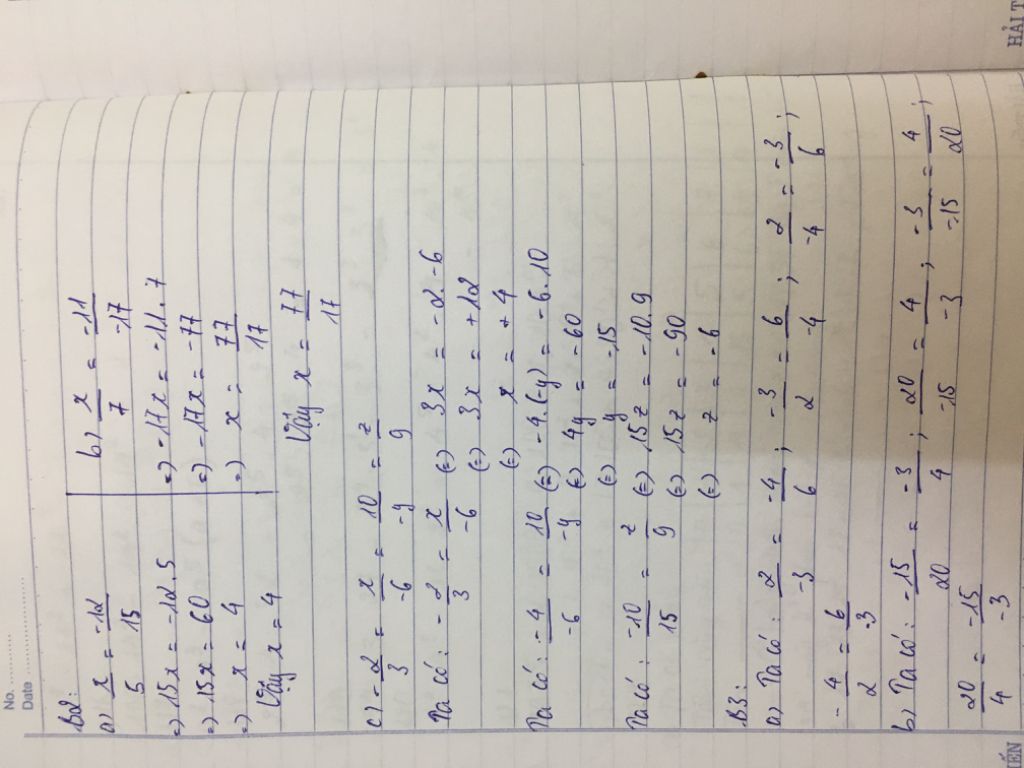 No. ...............
Date ...............
B2:
a) x/5 = -12/15
=) 15x = -12.5
=) 15x = 60
=) x = 4
Vậy x = 4
b) x/7 = -11/-17
=) -17x = -11.7
=) -17x = -77
=) x = 77/17
Vậy x = 77/17
c) -2/3 = x/-6 = 10/-y = z/9
Ta có: -2/3 = x/-6 (=) 3x = -2.-6
(=) 3x = +12
(=) x = +4
Ta có: -4/-6 = 10/-y (=) -4.(-y) = -6.10
(=) 4y = -60
(=) y = -15
Ta có: -10/15 = z/9 (=) 15z = -10.9
(=) 15z = -90
(=) z = -6
B3:
a) Ta có: 2/-3 = -4/6 ; -3/2 = 6/-4 ; 2/-4 = -3/6 ;
-4/2 = 6/-3
b) Ta có: -15/20 = -3/4 ; 20/-15 = 4/-3 ; -3/-15 = 4/20 ;
20/4 = -15/-3
HẢI T